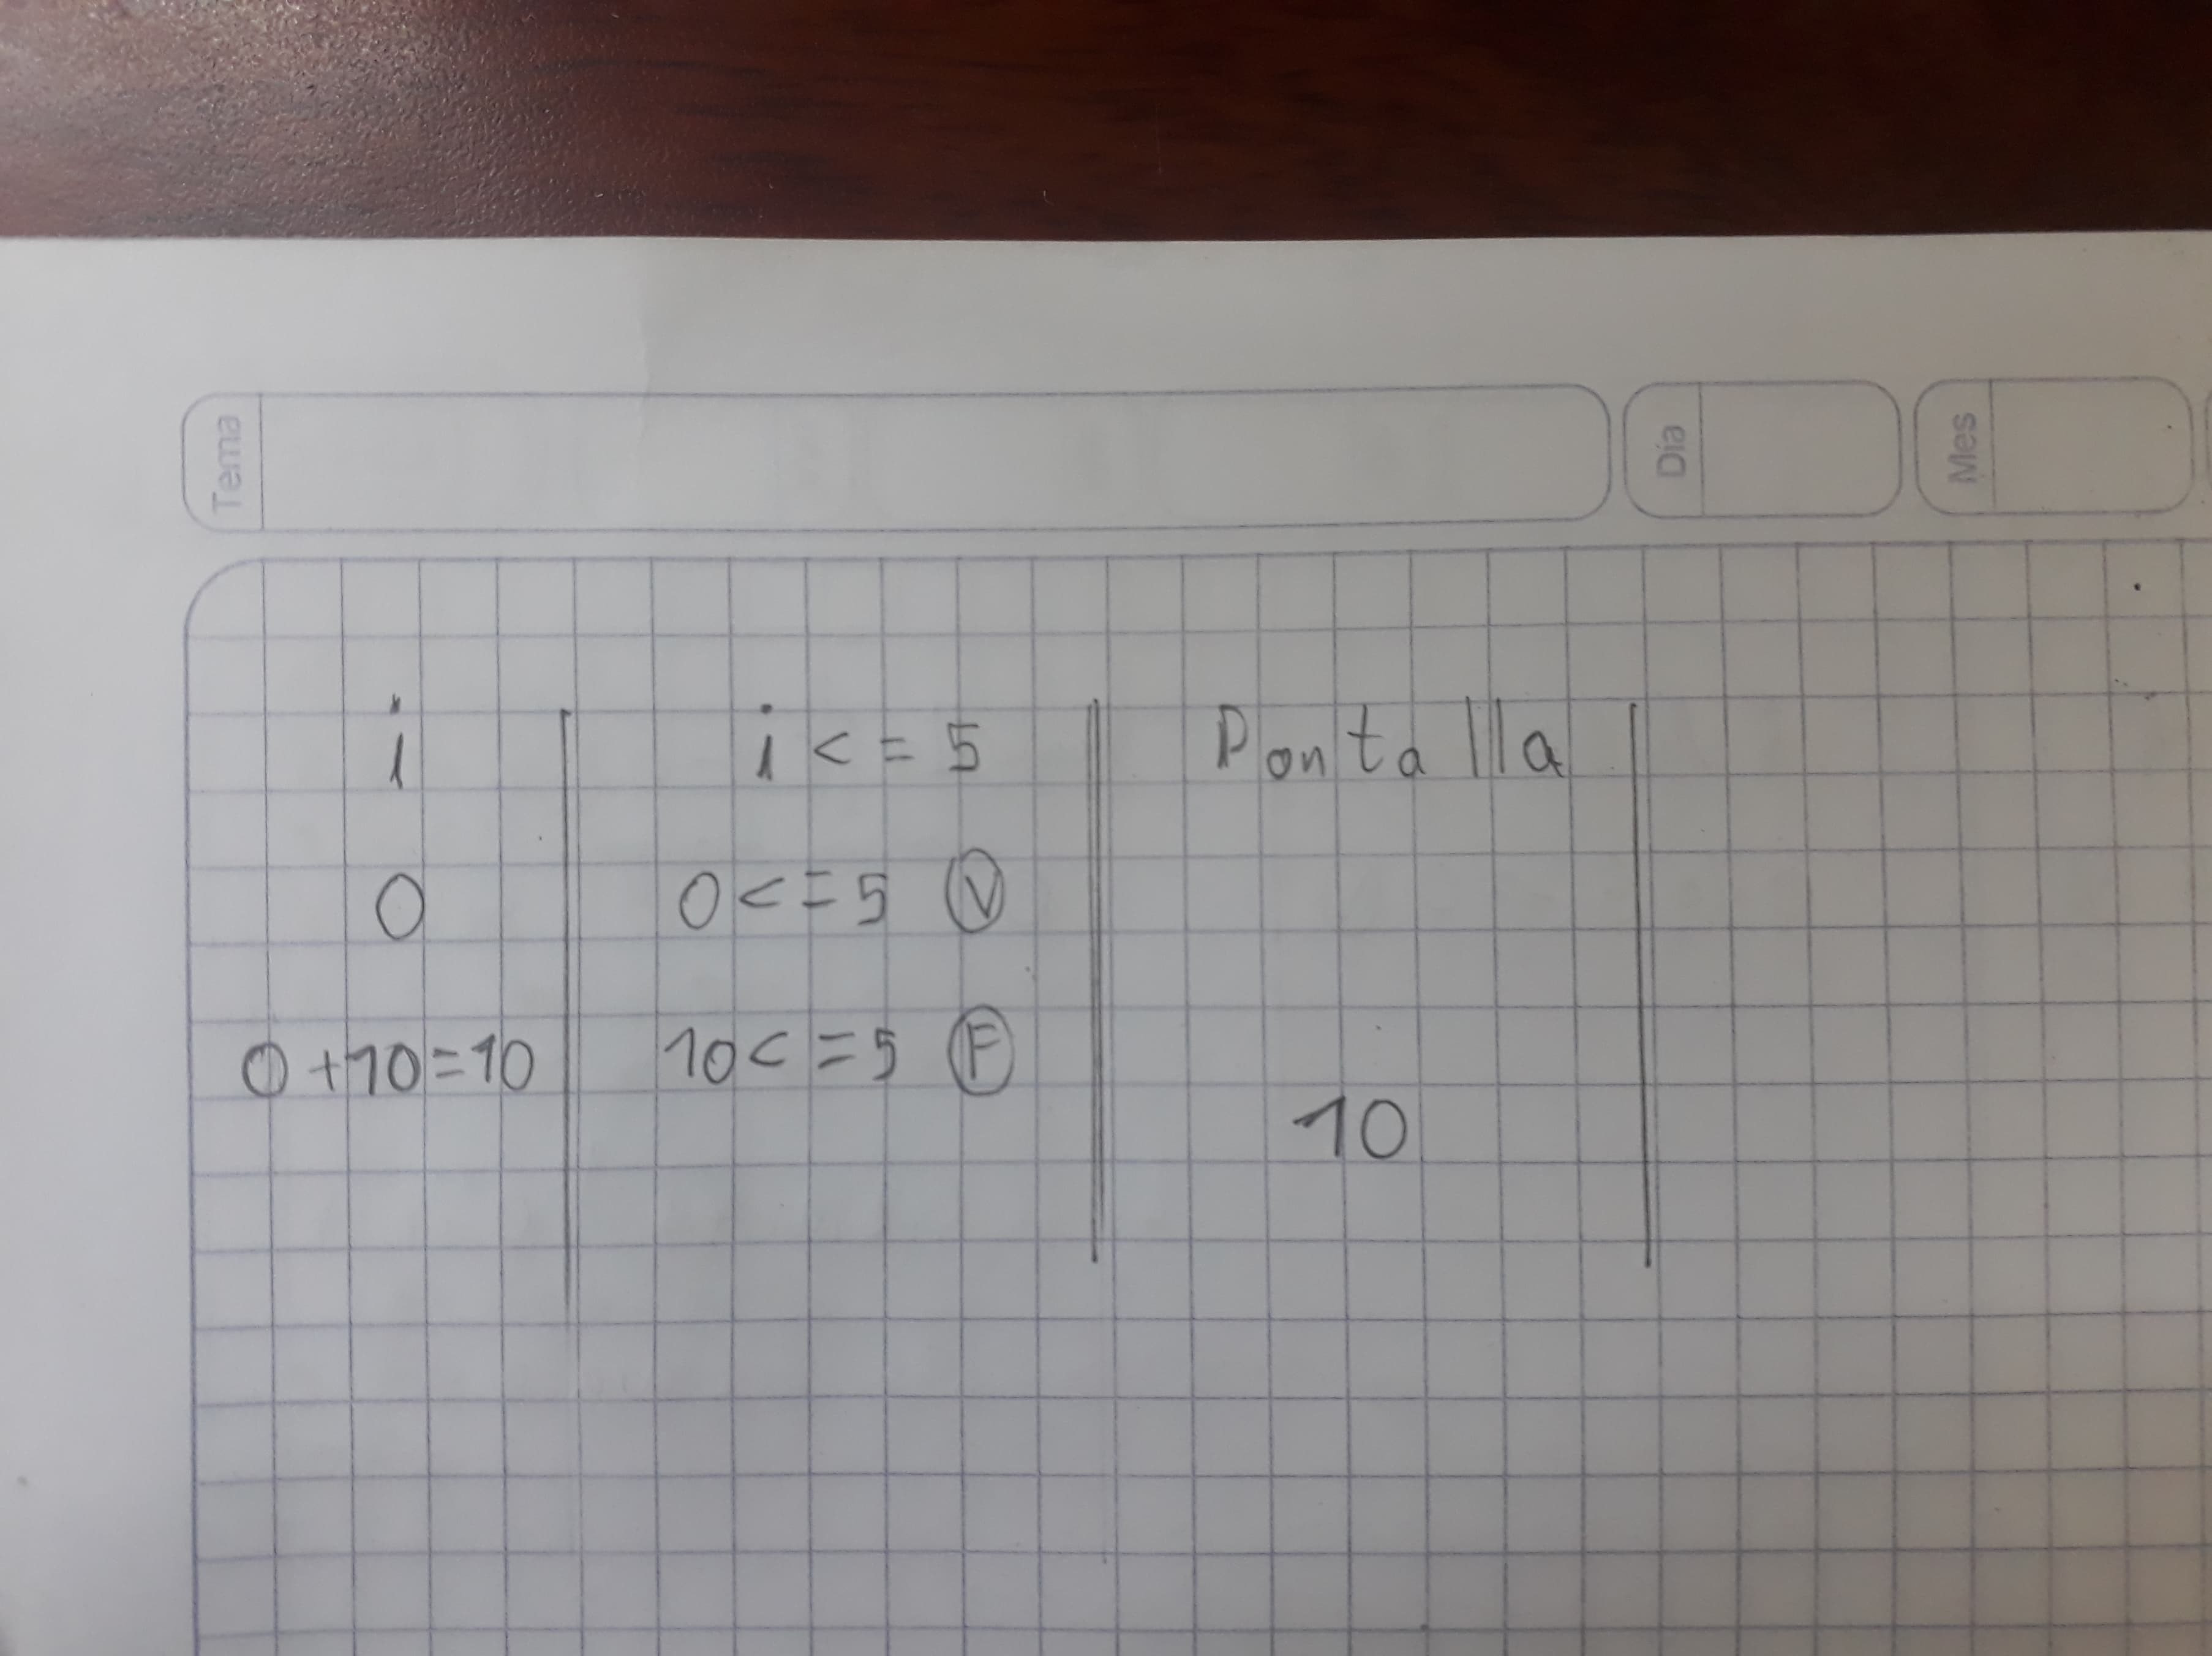 Tema Día Mes
i i <= 5 Pantalla
0 0 <= 5 V
0 + 10 = 10 10 <= 5 F
10